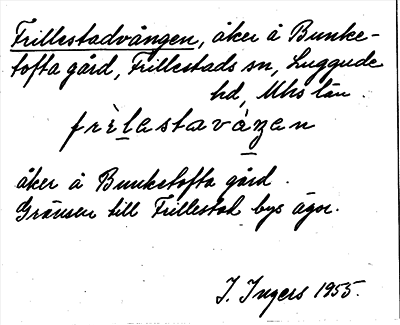 Frillestadvången, åker å Bunke-
tofta gård, Frillestads sn, Luggude
hd, Mhs län.
frìlestavàʒen
åker å Bunketofta gård.
Gränsen till Frillestad bys ägor.
I. Ingers 1955.